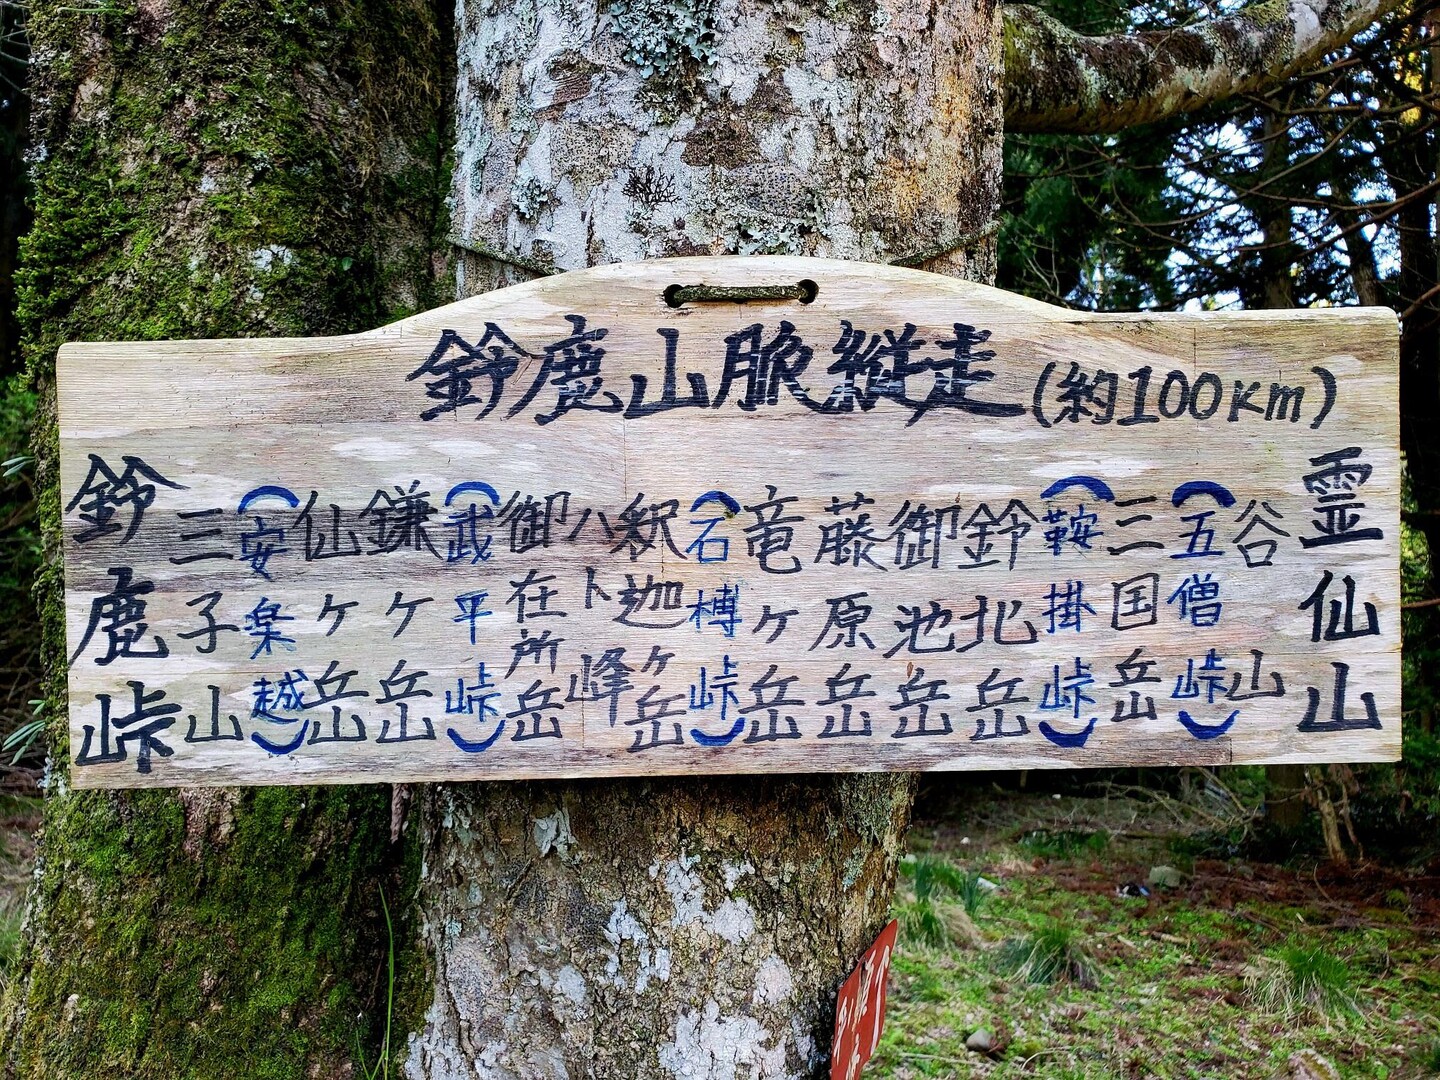 鈴鹿山脈縦走(約100Km)
鈴鹿峠
三子山
(安楽越)
仙ヶ岳
鎌ヶ岳
(武平峠)
御在所岳
ハト峰
釈迦ヶ岳
(石榑峠)
竜ヶ岳
藤原岳
御池岳
鈴北岳
(鞍掛峠)
三国岳
(五僧峠)
谷山
霊仙山